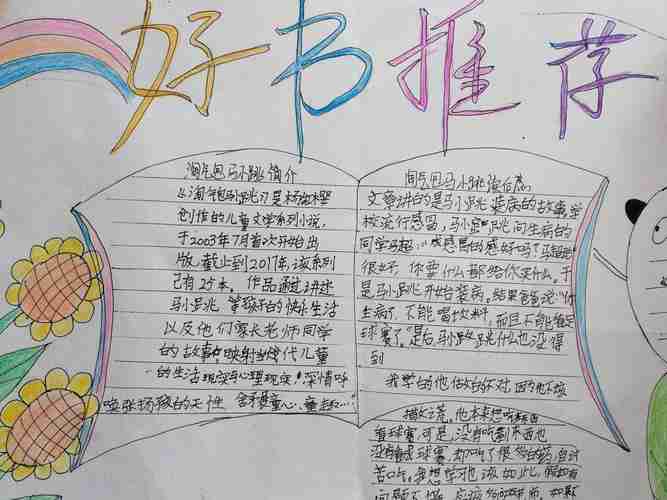 好书推荐
淘气包马小跳简介
《淘气包马小跳》是杨红樱
创作的儿童文学系列小说,
于2003年7月首次开始出
版,截止到2017年,该系列
已有25本。作品通过讲述
马小跳等孩子的快乐生活
以及他们家长老师同学
的故事,映射当代儿童
的生活现实与心理现实!深情呼
唤张扬孩的天性 童心、童趣……
淘气包马小跳读后感
文章讲的是马小跳装病的故事,学
校流行感冒,马小跳问生病的
同学马超:"感冒的感好吗?马超说
很好,你要什么都给你买什么。于
是马小跳开始装病。结果爸爸说:"你
生病了,不能喝饮料,而且不能看足
球赛了。"最后马小跳什么也没得
到
我觉的他做的不对,因为他不该
撒谎。他本来想吃
看球赛,可是,没有吃到东西也
没有看成球赛,却吃了很多的药,自讨
苦吃。我想学也该如此,